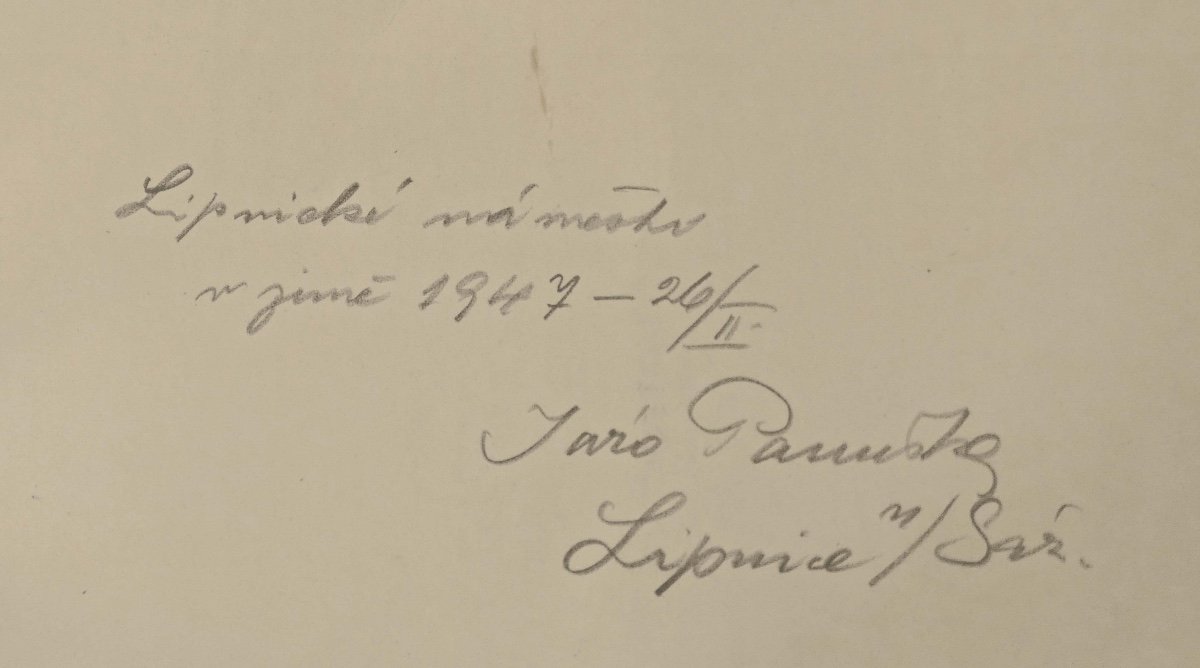 Lipnické náměstí
v zimě 1947 – 26/II.
Jaro Panuška
Lipnice n/Sáz.